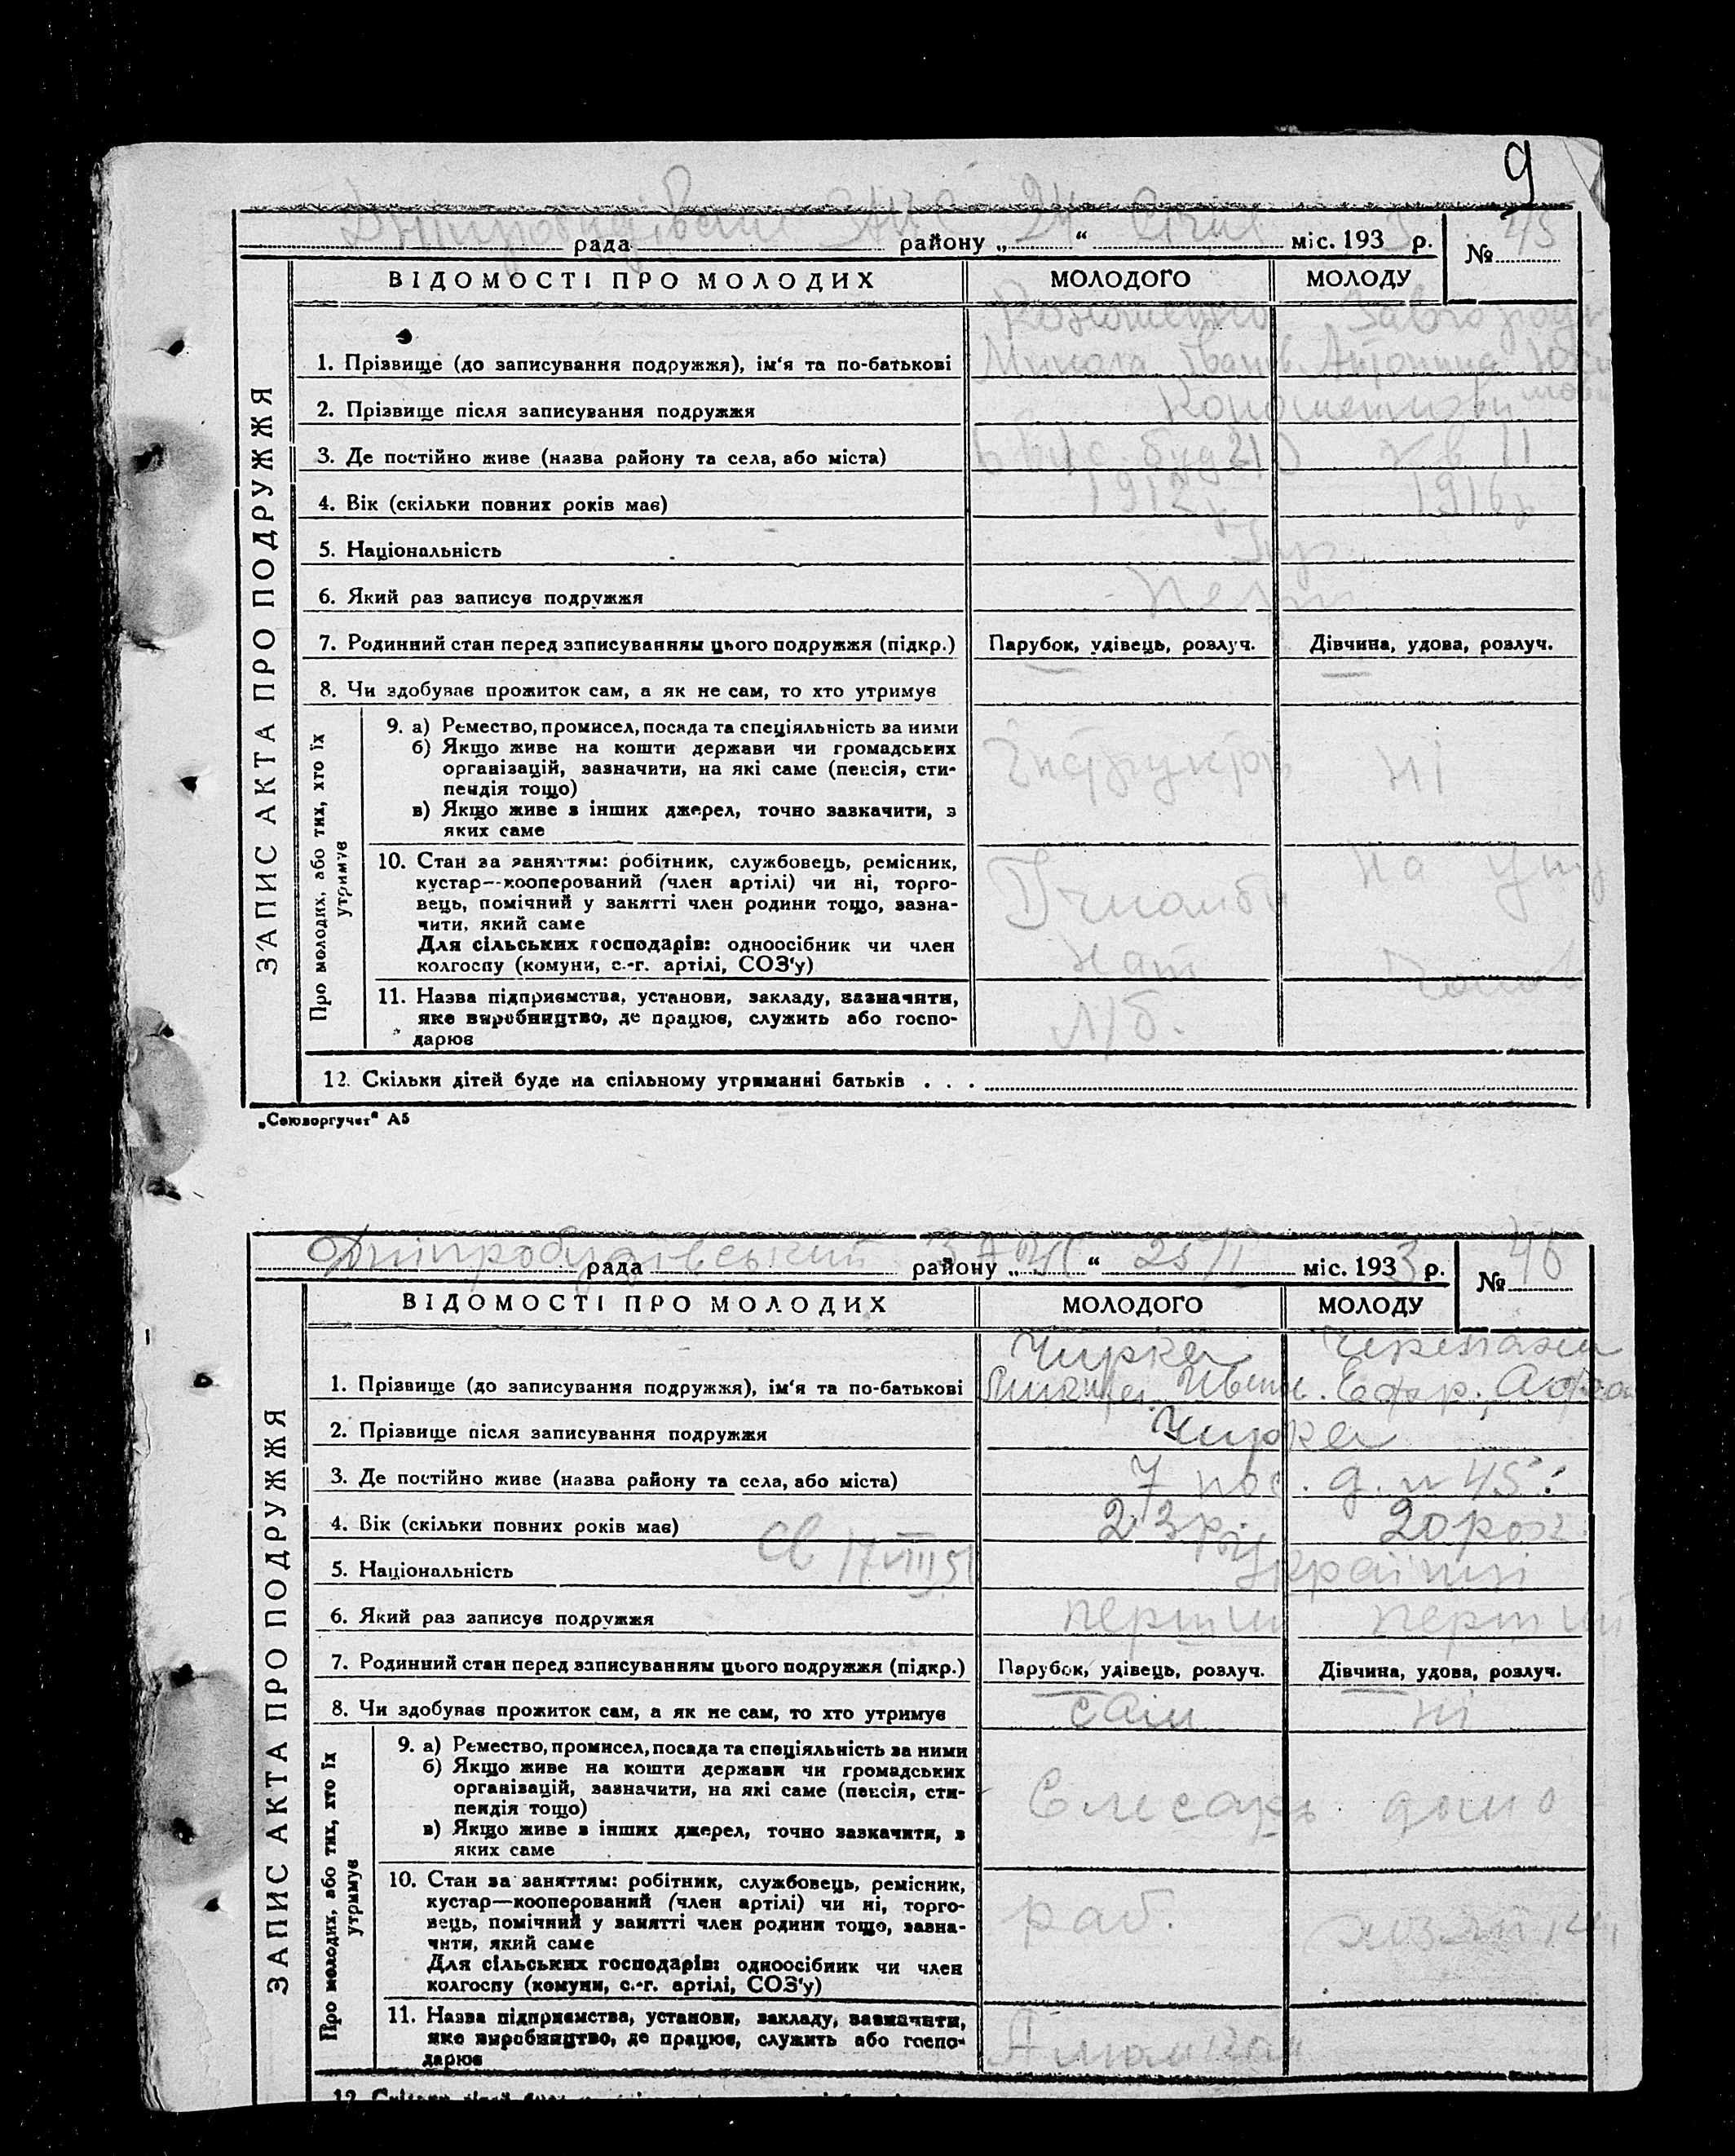 9
Дніпро
рада району „ 24 “ Січня міс. 1933 р.
№ 45
ВІДОМОСТІ ПРО МОЛОДИХ МОЛОДОГО МОЛОДУ
ЗАПИС АКТА ПРО ПОДРУЖЖЯ
1. Прізвище (до записування подружжя), ім‘я та по-батькові Микола Іванов Антонина
2. Прізвище після записування подружжя
3. Де постійно живе (назва району та села, або міста) буд 21 кв 11
4. Вік (скільки повних років має) 1912 1916
5. Національність Укр.
6. Який раз записує подружжя
7. Родинний стан перед записуванням цього подружжя (підкр.) Парубок, удівець, розлуч. Дівчина, удова, розлуч.
8. Чи здобуває прожиток сам, а як не сам, то хто утримує
Про молодих, або тих, хто їх
утримує
9. а) Ремество, промисел, посада та спеціяльність за ними
б) Якщо живе на кошти держави чи громадських
організацій, зазначити, на які саме (пенсія, сти-
пендія тощо)
в) Якщо живе з інших джерел, точно зазначити, з
яких саме
Інструктор ні
10. Стан за заняттям: робітник, службовець, ремісник,
кустар—кооперований (член артілі) чи ні, торго-
вець, помічний у занятті член родини тощо, зазна-
чити, який саме
Для сільських господарів: одноосібник чи член
колгоспу (комуни, с.-г. артілі, СОЗ‘у)
на
11. Назва підприємства, установи, закладу, зазначити,
яке виробництво, де працює, служить або госпо-
дарює
12. Скільки дітей буде на спільному утриманні батьків . . .
„Союзоргучет“ А5
Дніпробудівський ЗАГС
рада району „ “ 25/I міс. 1933 р.
№ 46
ВІДОМОСТІ ПРО МОЛОДИХ МОЛОДОГО МОЛОДУ
ЗАПИС АКТА ПРО ПОДРУЖЖЯ
Чирка
1. Прізвище (до записування подружжя), ім‘я та по-батькові
2. Прізвище після записування подружжя Чирка
3. Де постійно живе (назва району та села, або міста) 7 пос. д. н 45
4. Вік (скільки повних років має) 23 рік 20 рок
5. Національність Св 17 VIII 51 Українці
6. Який раз записує подружжя перший перший
7. Родинний стан перед записуванням цього подружжя (підкр.) Парубок, удівець, розлуч. Дівчина, удова, розлуч.
8. Чи здобуває прожиток сам, а як не сам, то хто утримує сам ні
Про молодих, або тих, хто їх
утримує
9. а) Ремество, промисел, посада та спеціяльність за ними
б) Якщо живе на кошти держави чи громадських
організацій, зазначити, на які саме (пенсія, сти-
пендія тощо)
в) Якщо живе з інших джерел, точно зазначити, з
яких саме
Слесарь домо
10. Стан за заняттям: робітник, службовець, ремісник,
кустар—кооперований (член артілі) чи ні, торго-
вець, помічний у занятті член родини тощо, зазна-
чити, який саме
Для сільських господарів: одноосібник чи член
колгоспу (комуни, с.-г. артілі, СОЗ‘у)
раб.
11. Назва підприємства, установи, закладу, зазначити,
яке виробництво, де працює, служить або госпо-
дарює